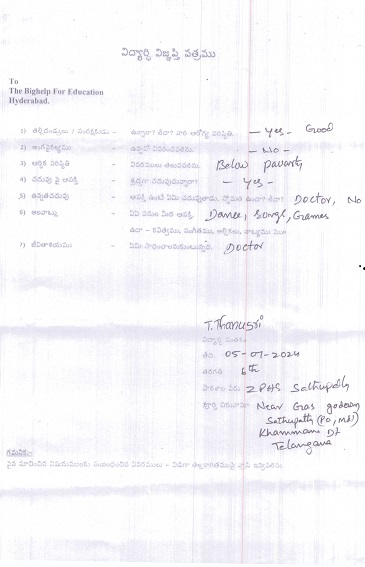 విద్యార్థి విజ్ఞప్తి పత్రము
To
The Bighelp For Education
Hyderabad.
1) తల్లిదండ్రులు / సంరక్షకుడు - ఉన్నారా? లేదా? వారి ఆరోగ్య పరిస్థితి. - Yes - Good
2) అంగవైకల్యము - ఉన్నచో వివరించవలెను. - No -
3) ఆర్థిక పరిస్థితి - వివరములు తెలుపవలెను. Below pavarty
4) చదువు పై ఆసక్తి - శ్రద్ధగా చదువుచున్నారా? - Yes -
5) ఉన్నతచదువు - ఆసక్తి ఉంటే ఏమి చదువుతారు. స్తోమత ఉందా? లేదా? Doctor, No
6) అలవాట్లు - ఏఏ పనుల మీద ఆసక్తి. Dance, Songs, Games
ఉదా - కవిత్వము, సంగీతము, ఆర్టికలు, నాట్యము
7) జీవితాశయము - ఏమి సాధించాలనుకుంటున్నది. Doctor
T. Thanusri
విద్యార్థి సంతకం
తేది. 05-07-2024
తరగతి 6th
పాఠశాల పేరు ZPHS Sathupally
పూర్తి చిరునామా Near Gas godown
Sathupally (PO, Md)
Khammam Dt
Telangana
గమనిక:-
పైన సూచించిన విషయములకు సంబంధించిన వివరములు - విడిగా తెల్లకాగితముపై వ్రాసి ఇవ్వవలెను.